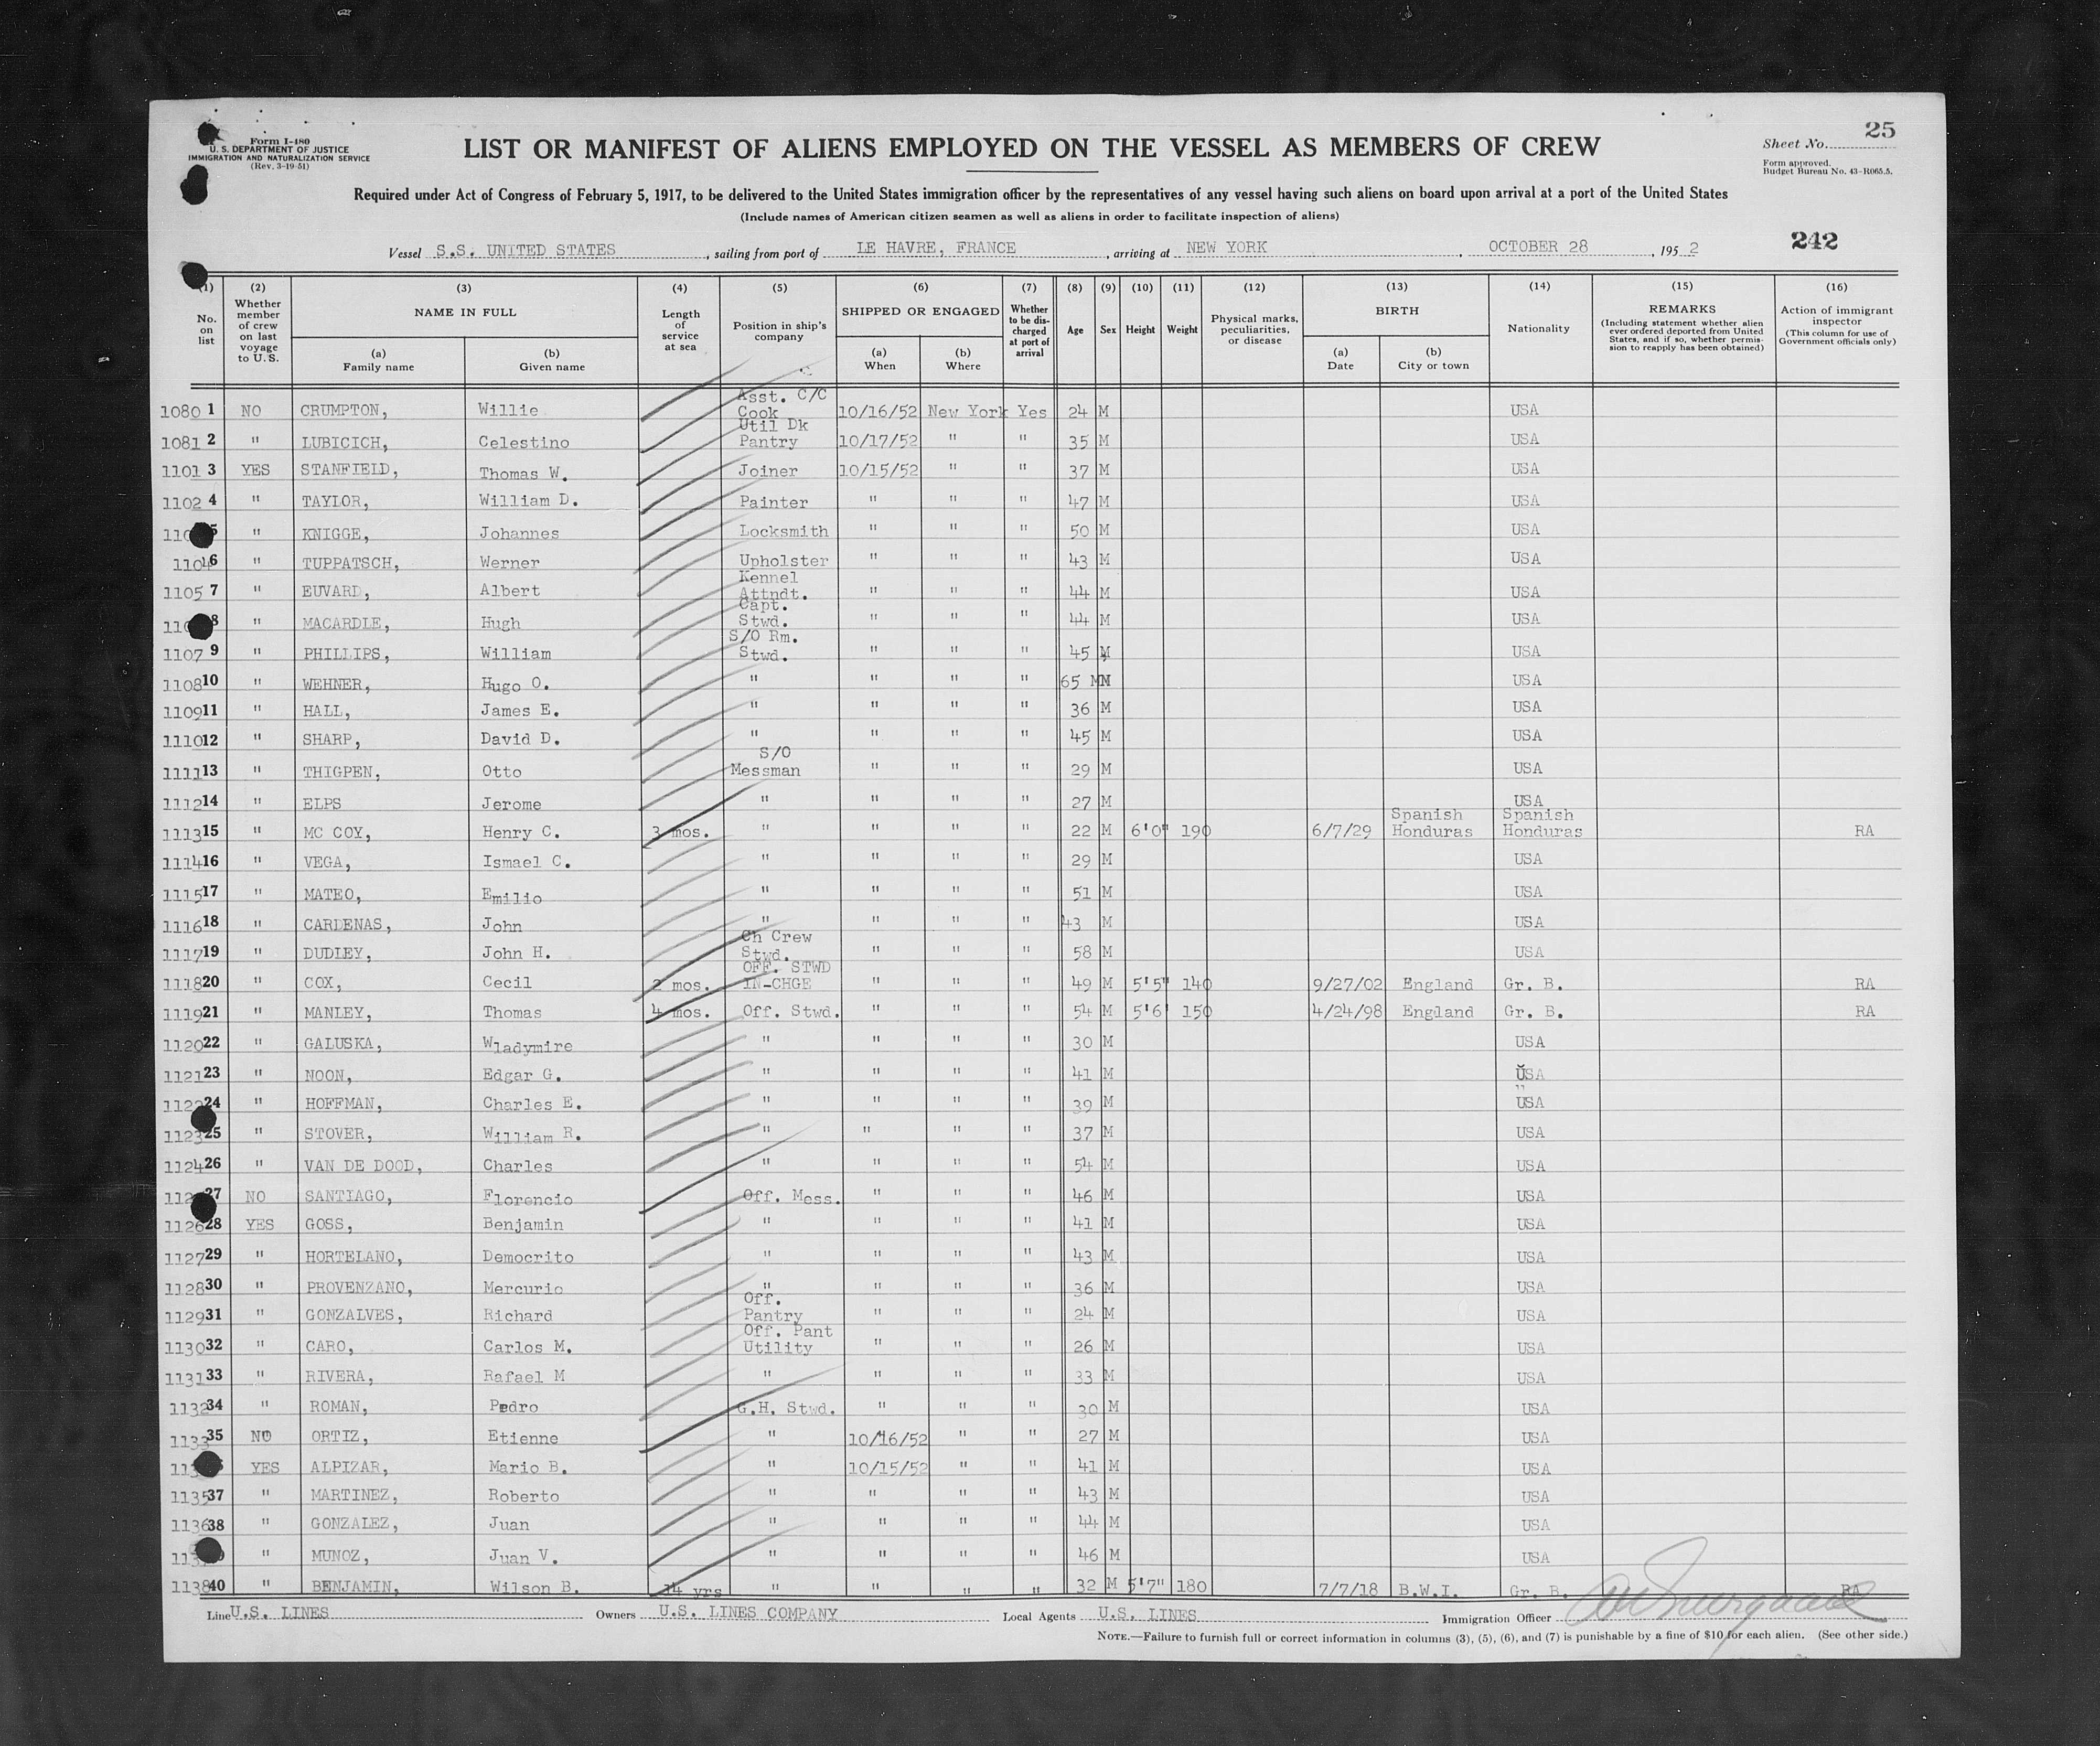 Form I-480
U. S. DEPARTMENT OF JUSTICE
IMMIGRATION AND NATURALIZATION SERVICE
(Rev. 3-19-51)
LIST OR MANIFEST OF ALIENS EMPLOYED ON THE VESSEL AS MEMBERS OF CREW
Sheet No. 25
Form approved.
Budget Bureau No. 43-R065.5.
Required under Act of Congress of February 5, 1917, to be delivered to the United States immigration officer by the representatives of any vessel having such aliens on board upon arrival at a port of the United States
(Include names of American citizen seamen as well as aliens in order to facilitate inspection of aliens)
242
Vessel S.S. UNITED STATES, sailing from port of LE HAVRE, FRANCE, arriving at NEW YORK, OCTOBER 28, 1952
(1) No. on list
(2) Whether member of crew on last voyage to U.S.
(3) NAME IN FULL (a) Family name (b) Given name
(4) Length of service at sea
(5) Position in ship's company
(6) SHIPPED OR ENGAGED (a) When (b) Where
(7) Whether to be discharged at port of arrival
(8) Age
(9) Sex
(10) Height
(11) Weight
(12) Physical marks, peculiarities, or disease
(13) BIRTH (a) Date (b) City or town
(14) Nationality
(15) REMARKS (Including statement whether alien ever ordered deported from United States, and if so, whether permission to reapply has been obtained)
(16) Action of immigrant inspector (This column for use of Government officials only)
1080 1 NO CRUMPTON, Willie Asst. C/C Cook 10/16/52 New York Yes 24 M USA
1081 2 " LUBICICH, Celestino Util Dk Pantry 10/17/52 " " 35 M USA
1101 3 YES STANFIELD, Thomas W. Joiner 10/15/52 " " 37 M USA
1102 4 " TAYLOR, William D. Painter " " " 47 M USA
110 5 " KNIGGE, Johannes Locksmith " " " 50 M USA
1104 6 " TUPPATSCH, Werner Upholster " " " 43 M USA
1105 7 " EUVARD, Albert Kennel Attndt. " " " 44 M USA
110 8 " MACARDLE, Hugh Capt. Stwd. " " " 44 M USA
1107 9 " PHILLIPS, William S/O Rm. Stwd. " " " 45 M USA
1108 10 " WEHNER, Hugo O. " " " " 65 MM USA
1109 11 " HALL, James E. " " " " 36 M USA
1110 12 " SHARP, David D. " " " " 45 M USA
1111 13 " THIGPEN, Otto S/O Messman " " " 29 M USA
1112 14 " ELPS Jerome " " " " 27 M USA
1113 15 " MC COY, Henry C. 3 mos. " " " " 22 M 6'0" 190 6/7/29 Spanish Honduras Spanish Honduras RA
1114 16 " VEGA, Ismael C. " " " " 29 M USA
1115 17 " MATEO, Emilio " " " " 51 M USA
1116 18 " CARDENAS, John " " " " 43 M USA
1117 19 " DUDLEY, John H. Ch Crew Stwd. " " " 58 M USA
1118 20 " COX, Cecil 2 mos. OFF. STWD IN-CHGE " " " 49 M 5'5" 140 9/27/02 England Gr. B. RA
1119 21 " MANLEY, Thomas 4 mos. Off. Stwd. " " " 54 M 5'6 150 4/24/98 England Gr. B. RA
1120 22 " GALUSKA, Wladymire " " " " 30 M USA
1121 23 " NOON, Edgar G. " " " " 41 M USA
1122 24 " HOFFMAN, Charles E. " " " " 39 M USA
1123 25 " STOVER, William R. " " " " 37 M USA
1124 26 " VAN DE DOOD, Charles " " " " 54 M USA
112 27 NO SANTIAGO, Florencio Off. Mess. " " " 46 M USA
1126 28 YES GOSS, Benjamin " " " " 41 M USA
1127 29 " HORTELANO, Democrito " " " " 43 M USA
1128 30 " PROVENZANO, Mercurio " " " " 36 M USA
1129 31 " GONZALVES, Richard Off. Pantry " " " 24 M USA
1130 32 " CARO, Carlos M. Off. Pant Utility " " " 26 M USA
1131 33 " RIVERA, Rafael M " " " " 33 M USA
1132 34 " ROMAN, Pedro G.H. Stwd. " " " 30 M USA
1133 35 NO ORTIZ, Etienne " 10/16/52 " " 27 M USA
113 YES ALPIZAR, Mario B. " 10/15/52 " " 41 M USA
1135 37 " MARTINEZ, Roberto " " " " 43 M USA
1136 38 " GONZALEZ, Juan " " " " 44 M USA
113 " MUNOZ, Juan V. " " " " 46 M USA
1138 40 " BENJAMIN, Wilson B. 14 yrs " " " " 32 M 5'7" 180 7/7/18 B.W.I. Gr. B. RA
Line U.S. LINES Owners U.S. LINES COMPANY Local Agents U.S. LINES Immigration Officer
NOTE.—Failure to furnish full or correct information in columns (3), (5), (6), and (7) is punishable by a fine of $10 for each alien. (See other side.)